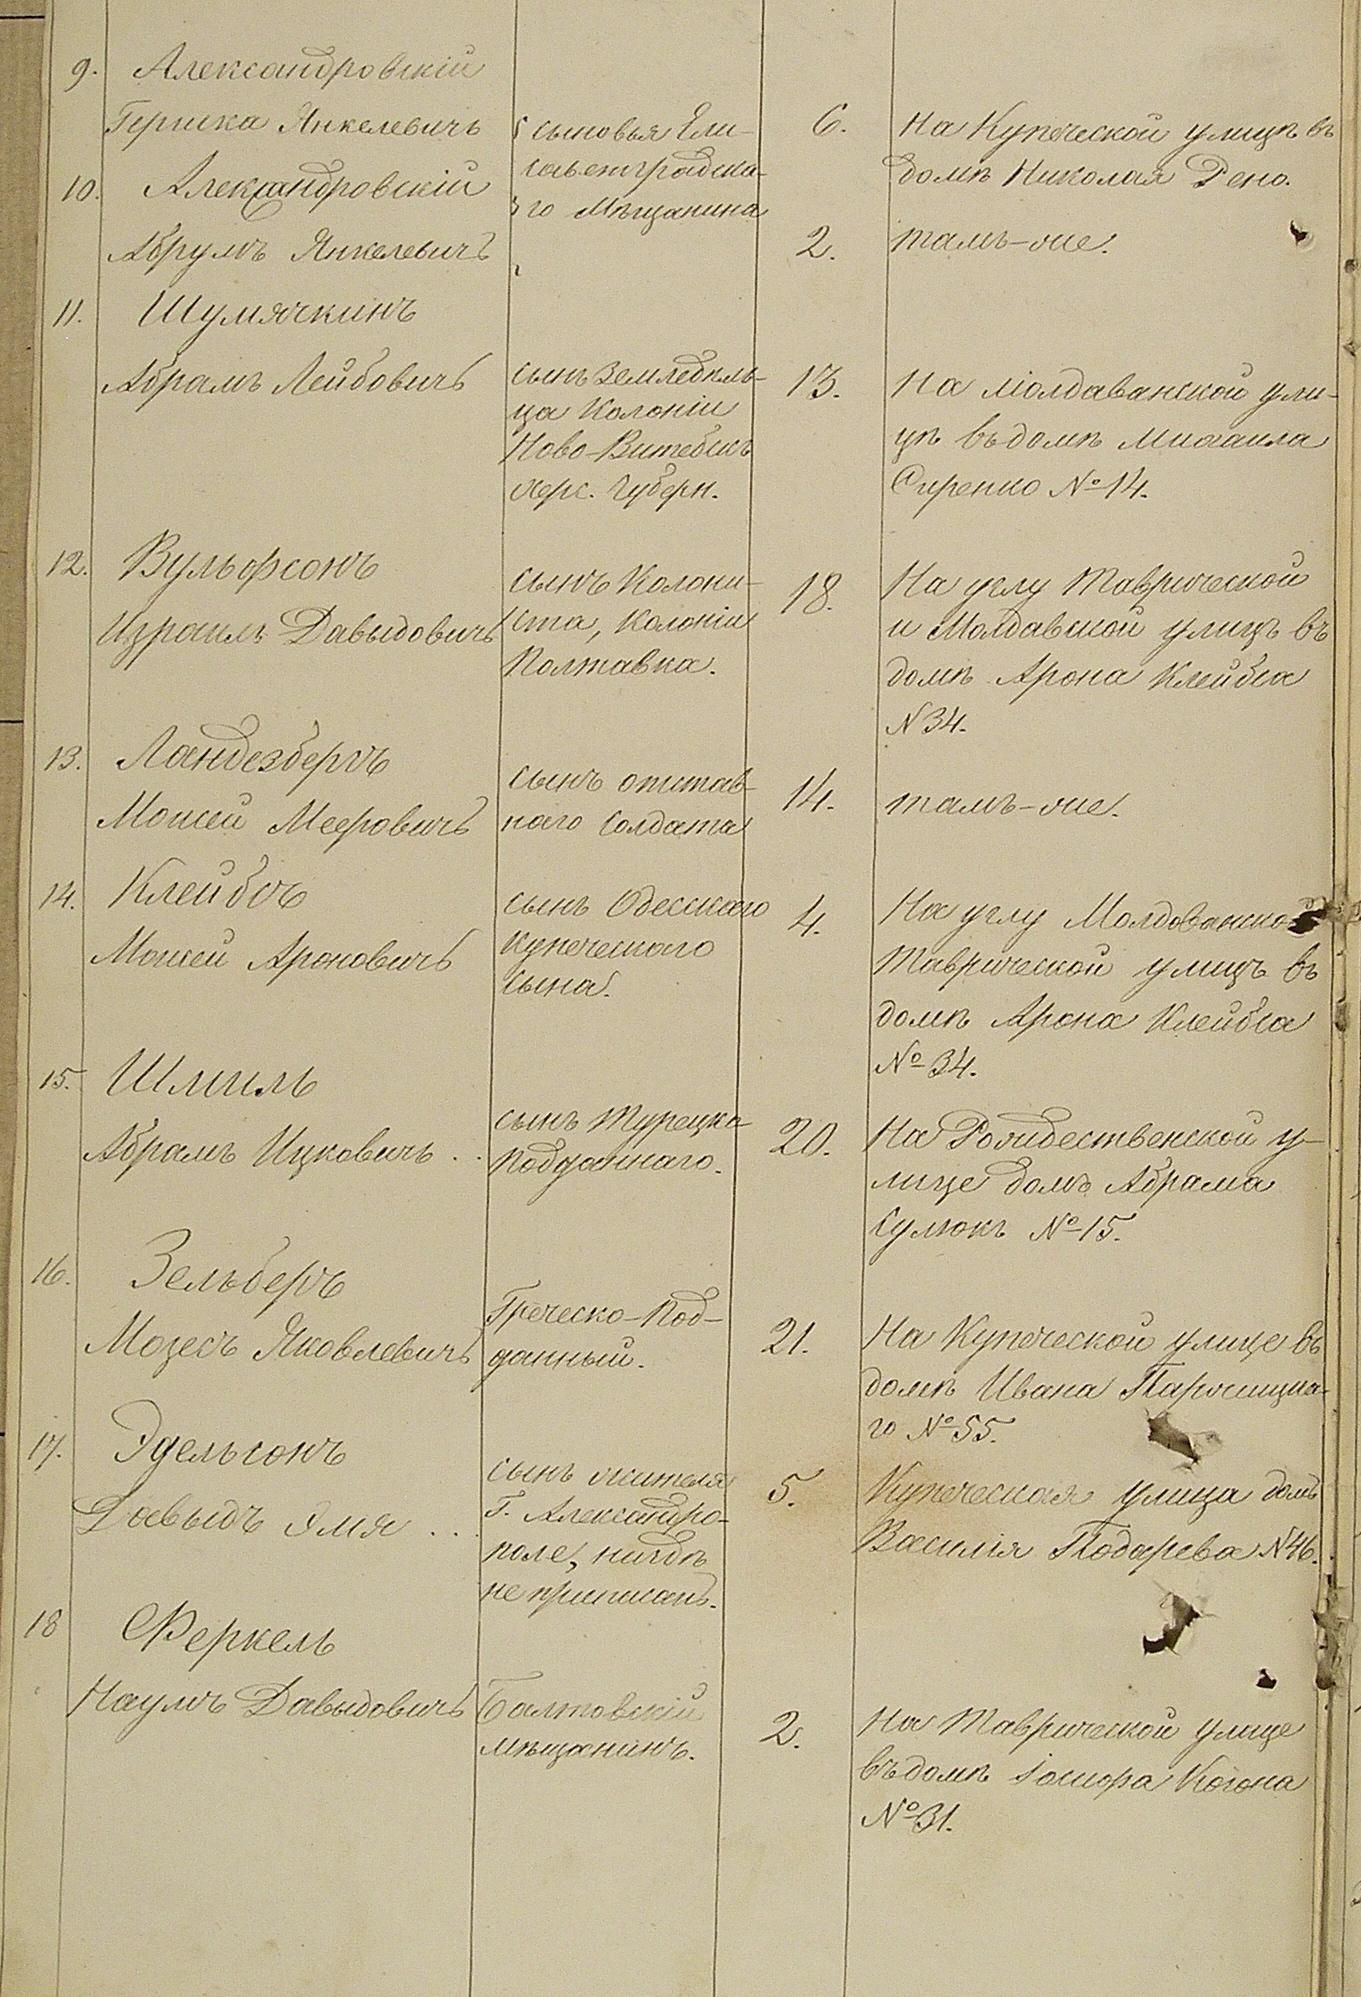 9. Александровскій
Гершка Янкелевичъ
сыновья Ели-
саветградска-
го Мѣщанина
6.
На Купеческой улицѣ въ
домѣ Николая Рено.
10. Александровскій
Абрумъ Янкелевичъ
2.
тамъ-же.
11. Шумячкинъ
Абрамъ Лейбовичъ
сынъ Земледѣль-
ца Колоніи
Ново-Витебскъ
Херс. Губерн.
13.
На Молдаванской ули-
цѣ въ домѣ Михаила
Сиренко № 14.
12. Вульфсонъ
Израиль Давыдовичъ
сынъ Колони-
ста, Колоніи
Полтавка.
18.
На углу Таврической
и Молдавской улицъ въ
домѣ Арона Клейбса
N 34.
13. Ландезбергъ
Моисей Мееровичъ
сынъ отстав-
наго Солдата
14.
тамъ-же.
14. Клейбсъ
Моисей Ароновичъ
сынъ Одесскаго
Купеческаго
Сына.
4.
На углу Молдованской
Таврической улицъ въ
домѣ Арона Клейбса
№ 34.
15. Шмиль
Абрамъ Ицковичъ . .
сынъ Турецко-
Подданнаго.
20.
На Рождественской у-
лице домъ Абрама
Сулюкъ № 15.
16. Зельберъ
Мозесъ Яковлевичъ
Греческо-Под-
данный.
21.
На Купеческой улице въ
домѣ Ивана
го № 55.
17. Эдельсонъ
Давыдъ Эмя . . .
сынъ жителя
Г. Александро-
поле, нигдѣ
не приписанъ.
5.
Купеческая улица домъ
Василія Подарева N 46.
18 Феркель
Наумъ Давыдовичъ
Балтовскій
мѣщанинъ.
2.
На Таврической улице
въ домѣ Іосифа Когона
№ 31.